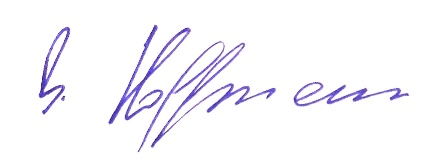 B. Hoffmann